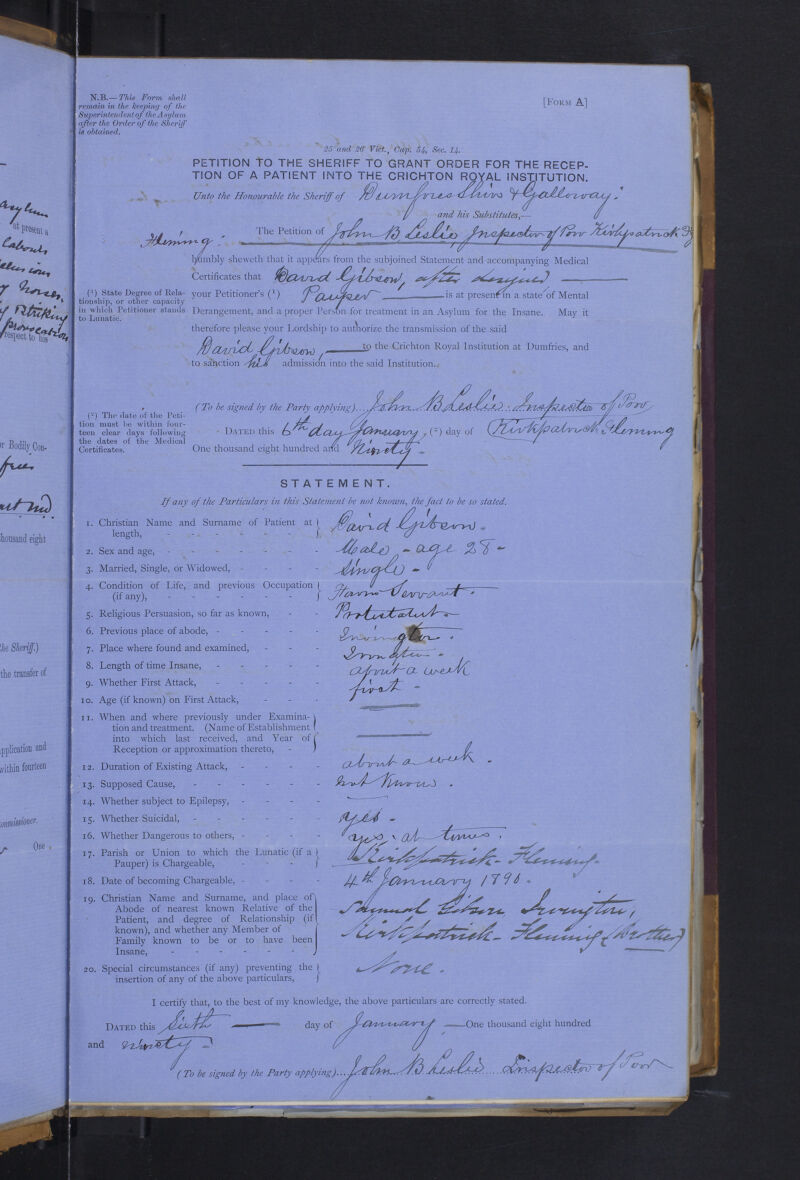 N.B.—This Form shall
remain in the keeping of the
Superintendent of the Asylum
after the Order of the Sheriff
is obtained.
[FORM A]
25 and 26 Vict., Cap. 54, Sec. 14.
PETITION TO THE SHERIFF TO GRANT ORDER FOR THE RECEP-
TION OF A PATIENT INTO THE CRICHTON ROYAL INSTITUTION.
Unto the Honourable the Sheriff of Dumfries Shire & Galloway.
and his Substitutes,—
The Petition of John B Leslie, Inspector of Poor Kirkpatrick
Fleming
humbly sheweth that it appears from the subjoined Statement and accompanying Medical
Certificates that David Gibson, after designed
(1) State Degree of Rela-
tionship, or other capacity
in which Petitioner stands
to Lunatic.
your Petitioner's (1) Pauper is at present in a state of Mental
Derangement, and a proper Person for treatment in an Asylum for the Insane. May it
therefore please your Lordship to authorize the transmission of the said
David Gibson, to the Crichton Royal Institution at Dumfries, and
to sanction his admission into the said Institution.
(To be signed by the Party applying) John B Leslie. Inspector of Poor
(2) The date of the Peti-
tion must be within four-
teen clear days following
the dates of the Medical
Certificates.
DATED this 6th day January, (2) day of Kirkpatrick Fleming
One thousand eight hundred and Ninety.
STATEMENT.
If any of the Particulars in this Statement be not known, the fact to be so stated.
1. Christian Name and Surname of Patient at
length, David Gibson.
2. Sex and age, Male - age 28 -
3. Married, Single, or Widowed, Single -
4. Condition of Life, and previous Occupation
(if any), Farm Servant.
5. Religious Persuasion, so far as known, Protestant
6. Previous place of abode, Irvington.
7. Place where found and examined, Irvington.
8. Length of time Insane, about a week
9. Whether First Attack, first -
10. Age (if known) on First Attack,
11. When and where previously under Examina-
tion and treatment. (Name of Establishment
into which last received, and Year of
Reception or approximation thereto,
12. Duration of Existing Attack, about a week.
13. Supposed Cause, not known.
14. Whether subject to Epilepsy,
15. Whether Suicidal, yes -
16. Whether Dangerous to others, yes, at times.
17. Parish or Union to which the Lunatic (if a
Pauper) is Chargeable, Kirkpatrick-Fleming.
18. Date of becoming Chargeable, 4th January 1890.
19. Christian Name and Surname, and place of
Abode of nearest known Relative of the
Patient, and degree of Relationship (if
known), and whether any Member of
Family known to be or to have been
Insane,
Samuel Gibson Irvington,
Kirkpatrick-Fleming (brother)
20. Special circumstances (if any) preventing the
insertion of any of the above particulars, None.
I certify that, to the best of my knowledge, the above particulars are correctly stated.
DATED this Sixth day of January One thousand eight hundred
and ninety
(To be signed by the Party applying) John B Leslie Inspector of Poor
Asylum
at present a
horses.
striking
provocation
respect to his
or Bodily Con-
thousand eight
the Sheriff.)
the transfer of
application and
within fourteen
ommissioner.
One